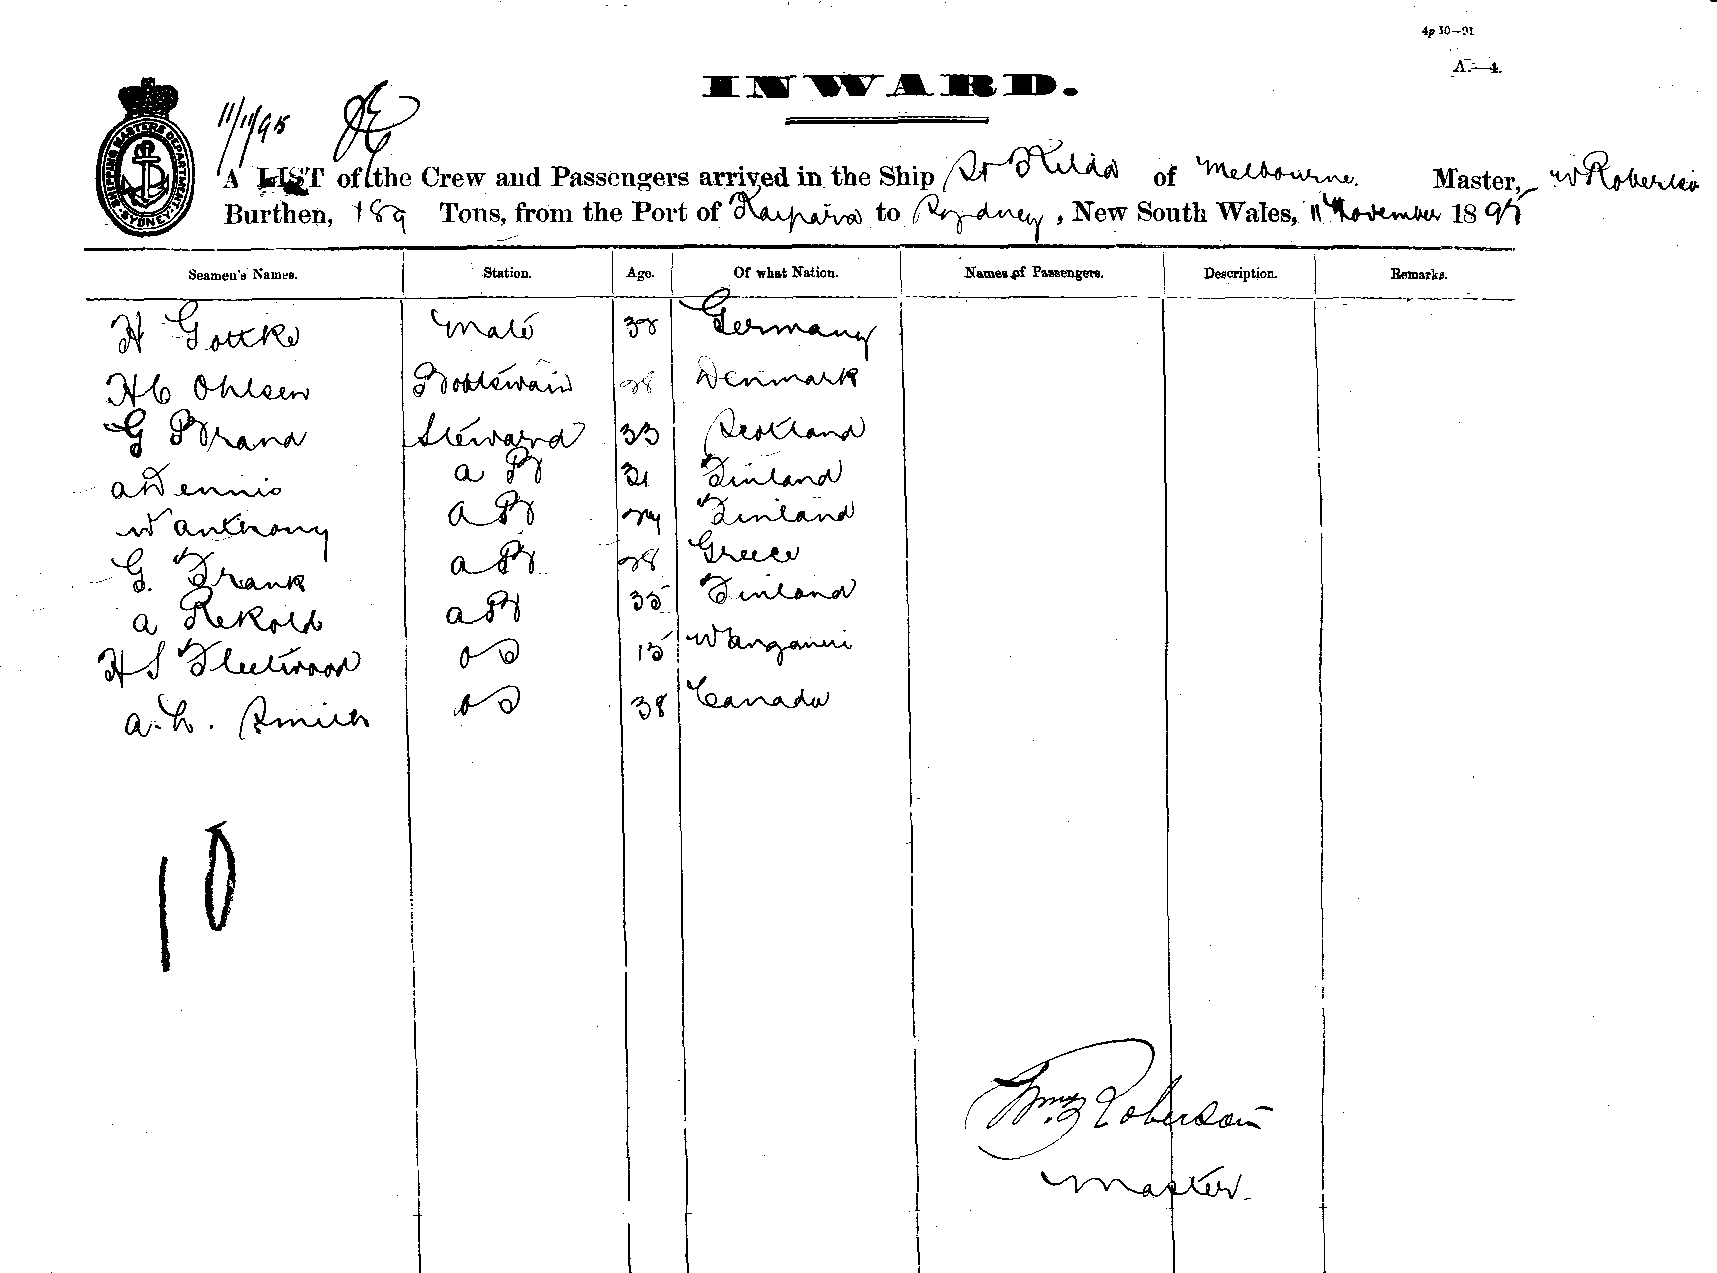 4p 10—91
A.—4.
INWARD.
11/11/95
SHIPPING MASTERS DEPARTMENT SYDNEY
A LIST of the Crew and Passengers arrived in the Ship St Kilda of Melbourne. Master, W Roberson
Burthen, 189 Tons, from the Port of Kaipara to Sydney, New South Wales, 11 November 1895
Seamen's Names. Station. Age. Of what Nation. Names of Passengers. Description. Remarks.
H Gottke Mate 38 Germany
H C Ohlsen Boatswain 28 Denmark
G Brand Steward 33 Scotland
A Dennis A B 31 Finland
W Anthony A B Finland
G. Frank A B 28 Greece
A Rekold A B 35 Finland
H S Fleetwood O S 15 Wanganui
A. L. Smith O S 38 Canada
10
Wm Roberson
Master.